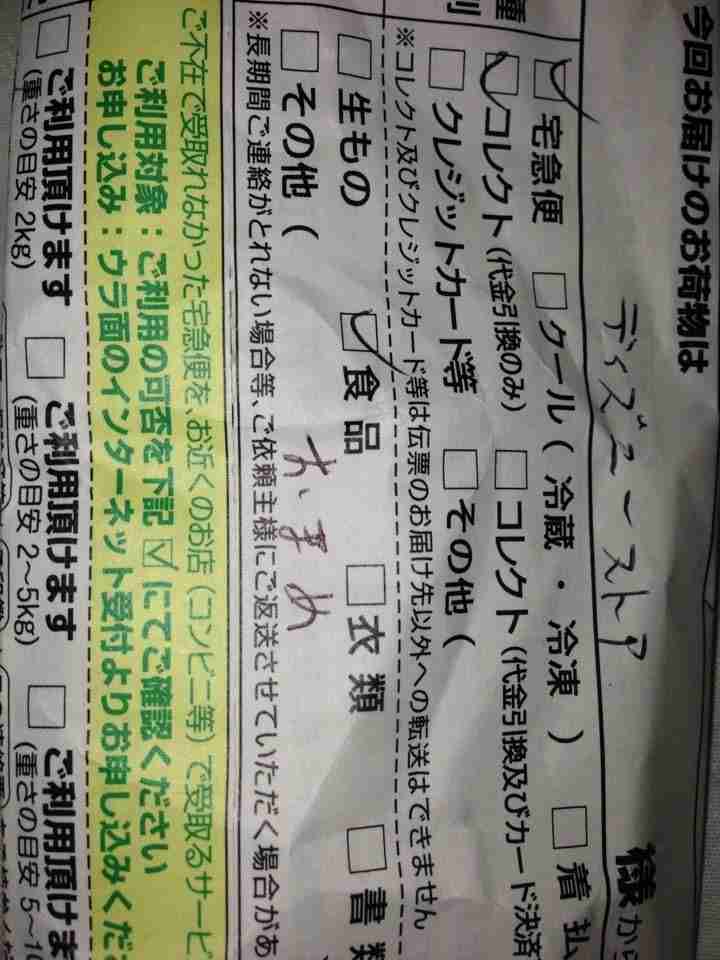 今回お届けのお荷物は
ディズニーストア 様から
種別
☑ 宅急便 □ クール ( 冷蔵・冷凍 ) □ 着払
☑ コレクト(代金引換のみ) □ コレクト(代金引換及びカード決済
□ クレジットカード等 □ その他 (
※コレクト及びクレジットカード等は伝票のお届け先以外への転送はできません
□ 生もの ☑ 食品 □ 衣類 □ 書類
□ その他 ( おまめ
※長期間ご連絡がとれない場合等、ご依頼主様にご返送させていただく場合があ
ご不在で受取れなかった宅急便を、お近くのお店(コンビニ等)で受取るサービ
ご利用対象:ご利用の可否を下記☑にてご確認ください
お申し込み:ウラ面のインターネット受付よりお申し込みくだ
□ ご利用頂けます □ ご利用頂けます □ ご利用頂けま
(重さの目安 2kg) (重さの目安 2~5kg) (重さの目安 5~10